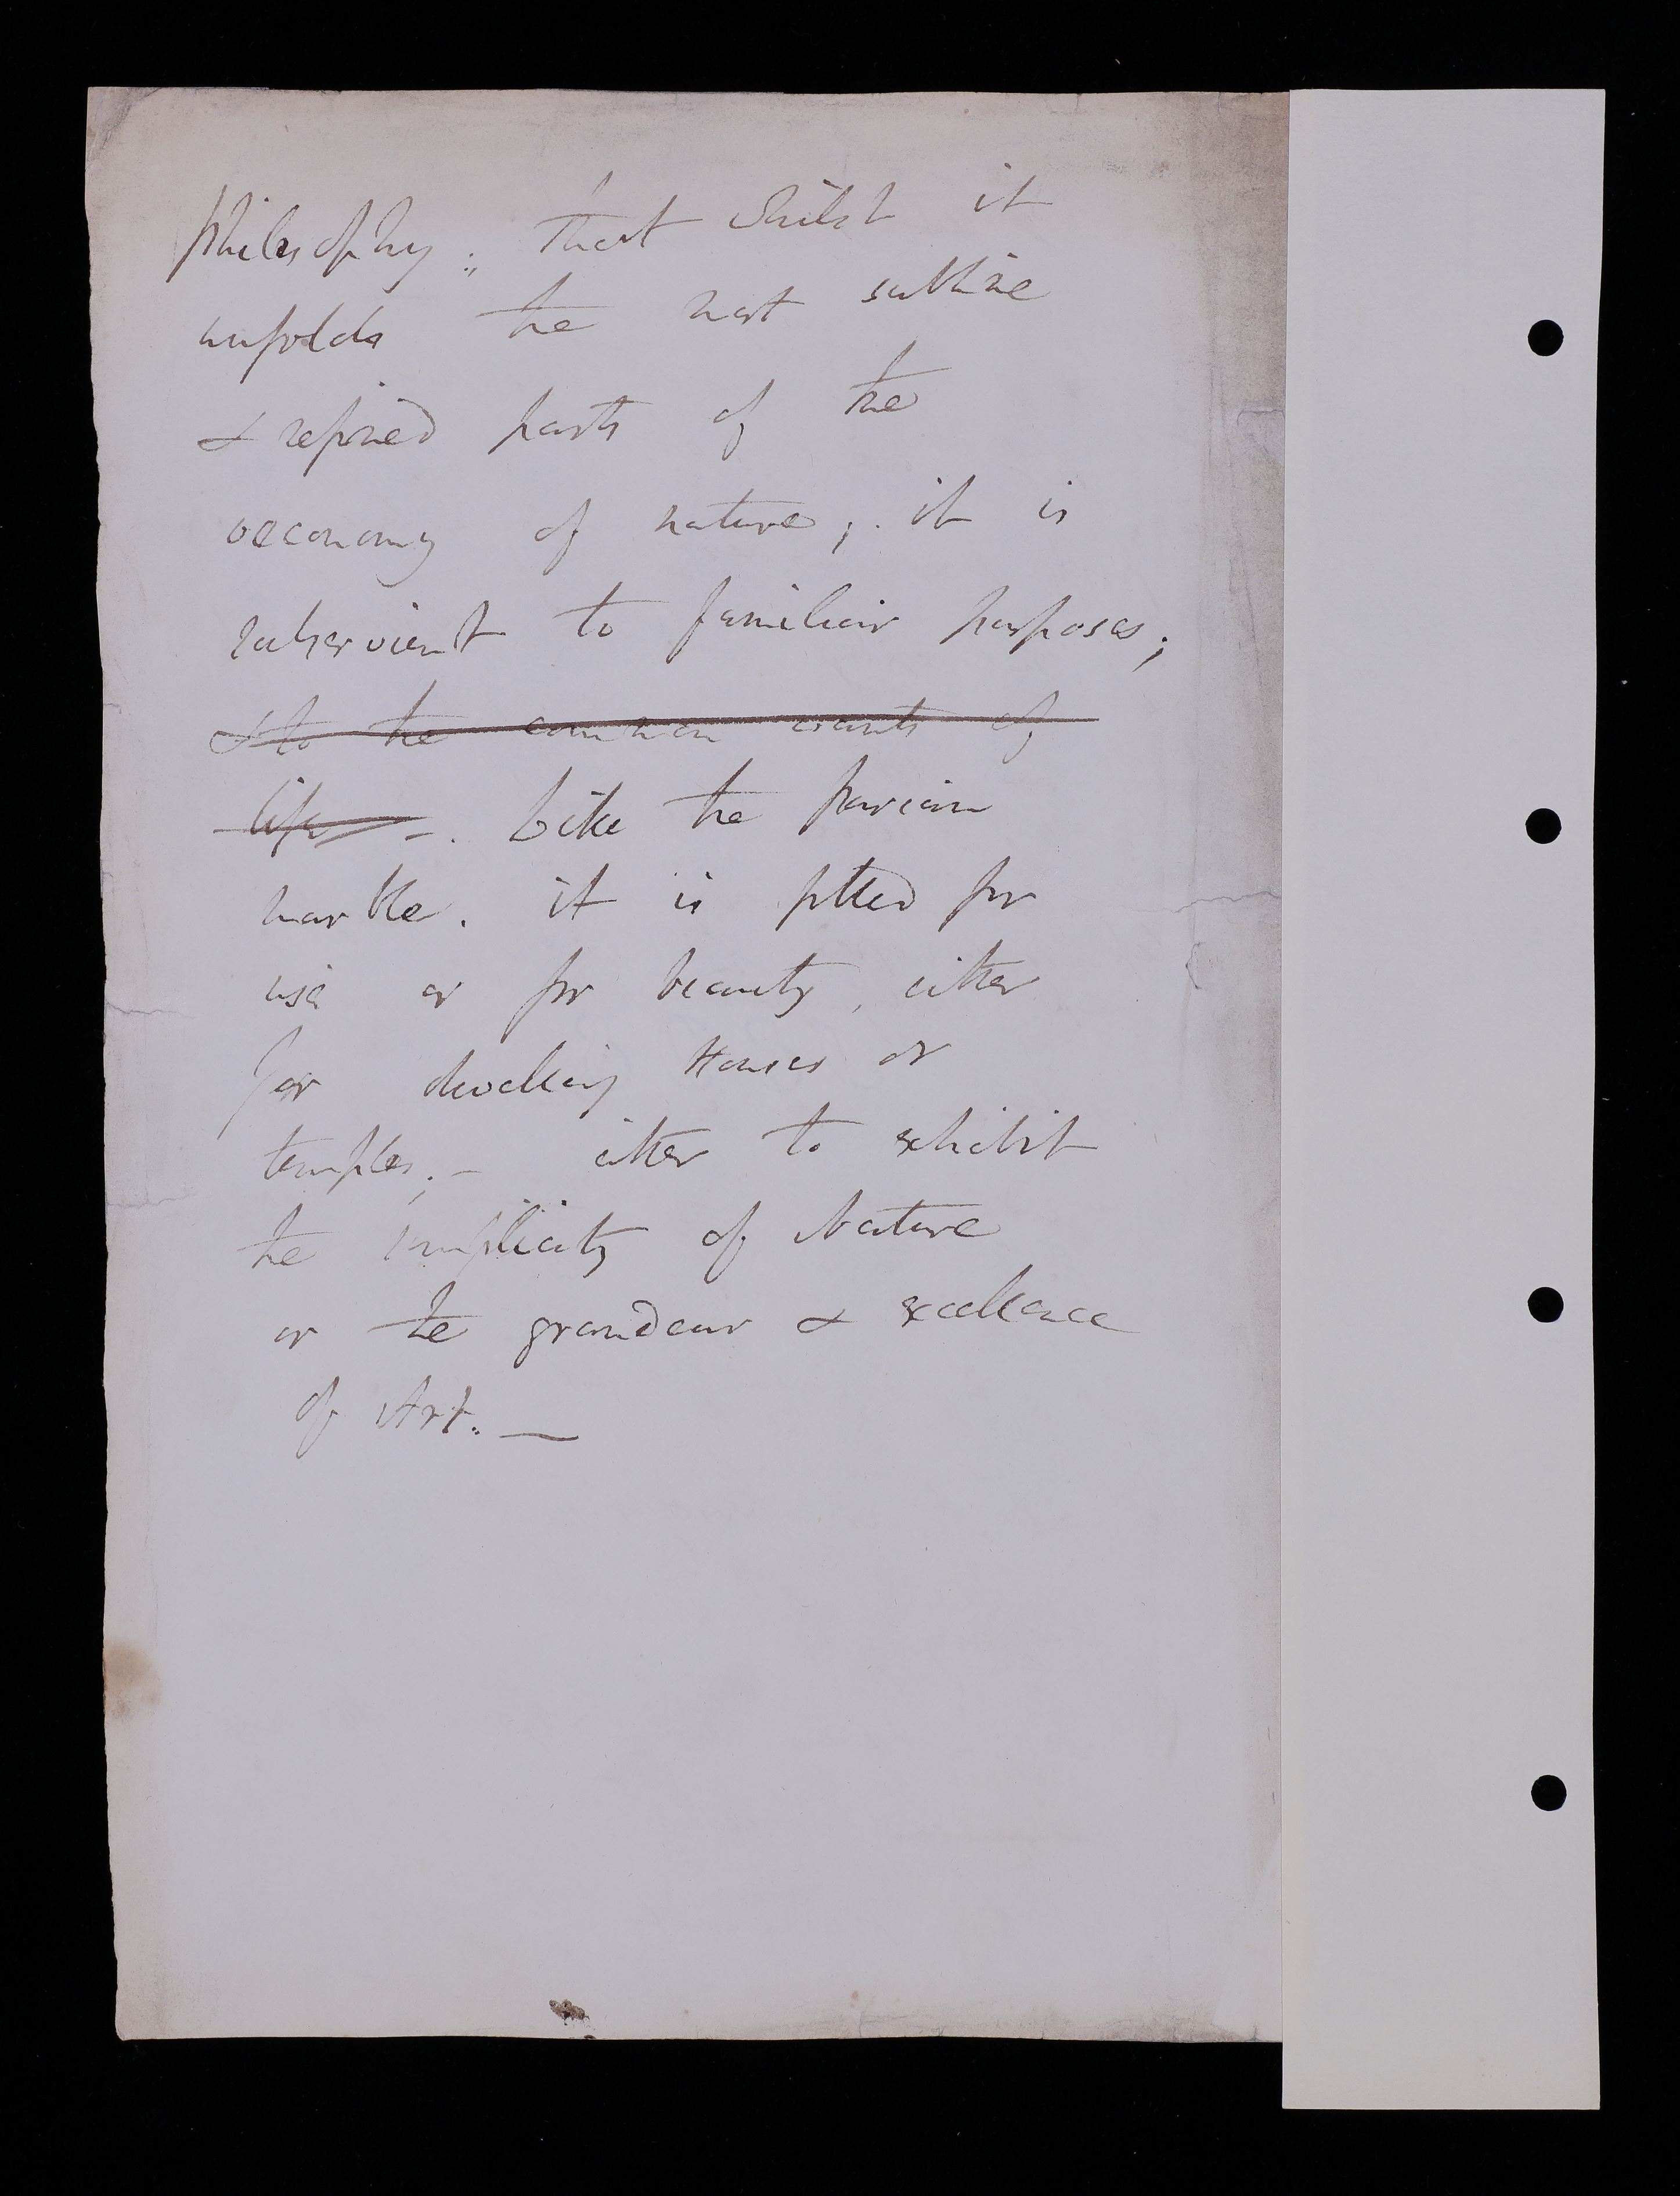 philosophy; that whilst it
unfolds the most sublime
& refined parts of the
oeconomy of nature; it is
subservient to familiar purposes;
& to the common wants of
life -. Like the parian
marble. it is fitted for
use or for beauty, either
for dwelling Houses or
temples; - either to exhibit
the simplicity of Nature
or the grandeur & excellence
of Art. —